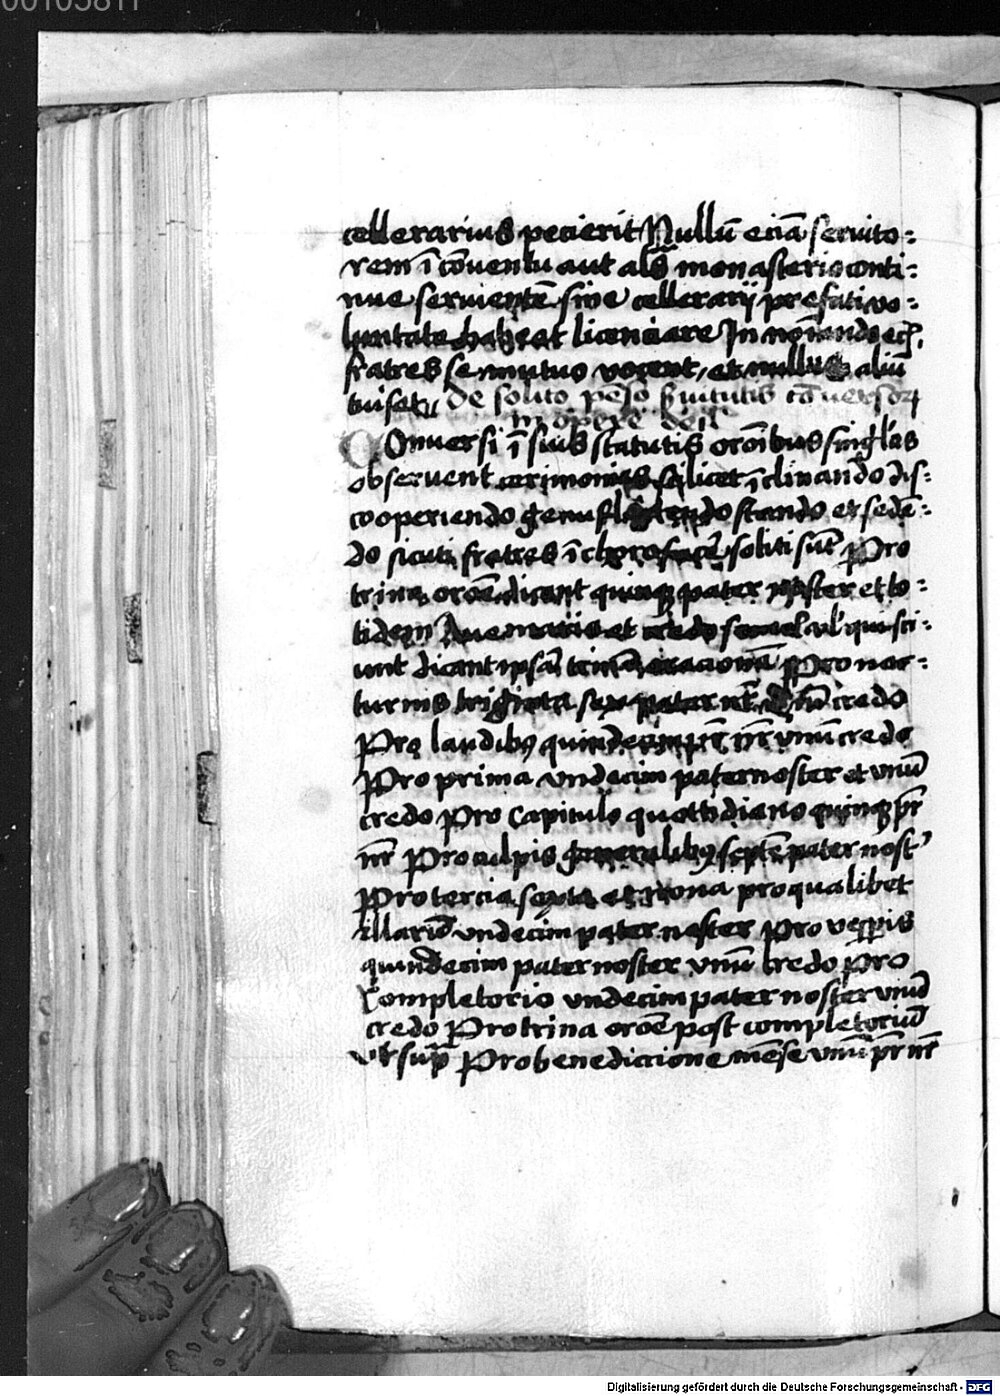 00105811
cellerarius pecierit Nullū eciā seruito⸗
rem ī cōuentu aut alš monasterio conti⸗
nue seruientē sine cellerarij prefati vo⸗
luntate habeat licenciare In
fratres se mutuo vocent, et nullus aliū
tuiset, De solito penso ỹuitutis cōuersoꝝ
in opere dei
COnuersi ī suis statutis orōibus singl'as
obseruent cerimonias scilicet īclinando dis⸗
cooperiendo genuflectendo stando et sedē⸗
do sicuti fratres ī choro facē soliti sūt Pro
trina orōe dicant quinqꝫ pater noster et to⸗
tidem Aue maria et credo semel vl' qui sci⸗
unt dicant ipsā trinā oracionē Pro noc⸗
turnis triginta sex pater nr̄ vnū credo
Pro laudibꝰ quindecim pr̄ nr̄ vnū credo
Pro prima vndecim pater noster et vnū
credo Pro Capitulo quottidiano quinqꝫ pr̄
nr̄ Pro culpis generalibꝰ septē pater nost'
Pro tercia sexta et nona pro qualibet
illarū vndecim pater noster Pro vesperis
quindecim pater noster vnū credo Pro
Completorio vndecim pater noster vnū
credo Pro trina orōe post completoriū
vt sup̄ Pro benediccione mēse vnū pr̄ nr̄
Digitalisierung gefördert durch die Deutsche Forschungsgemeinschaft - DFG